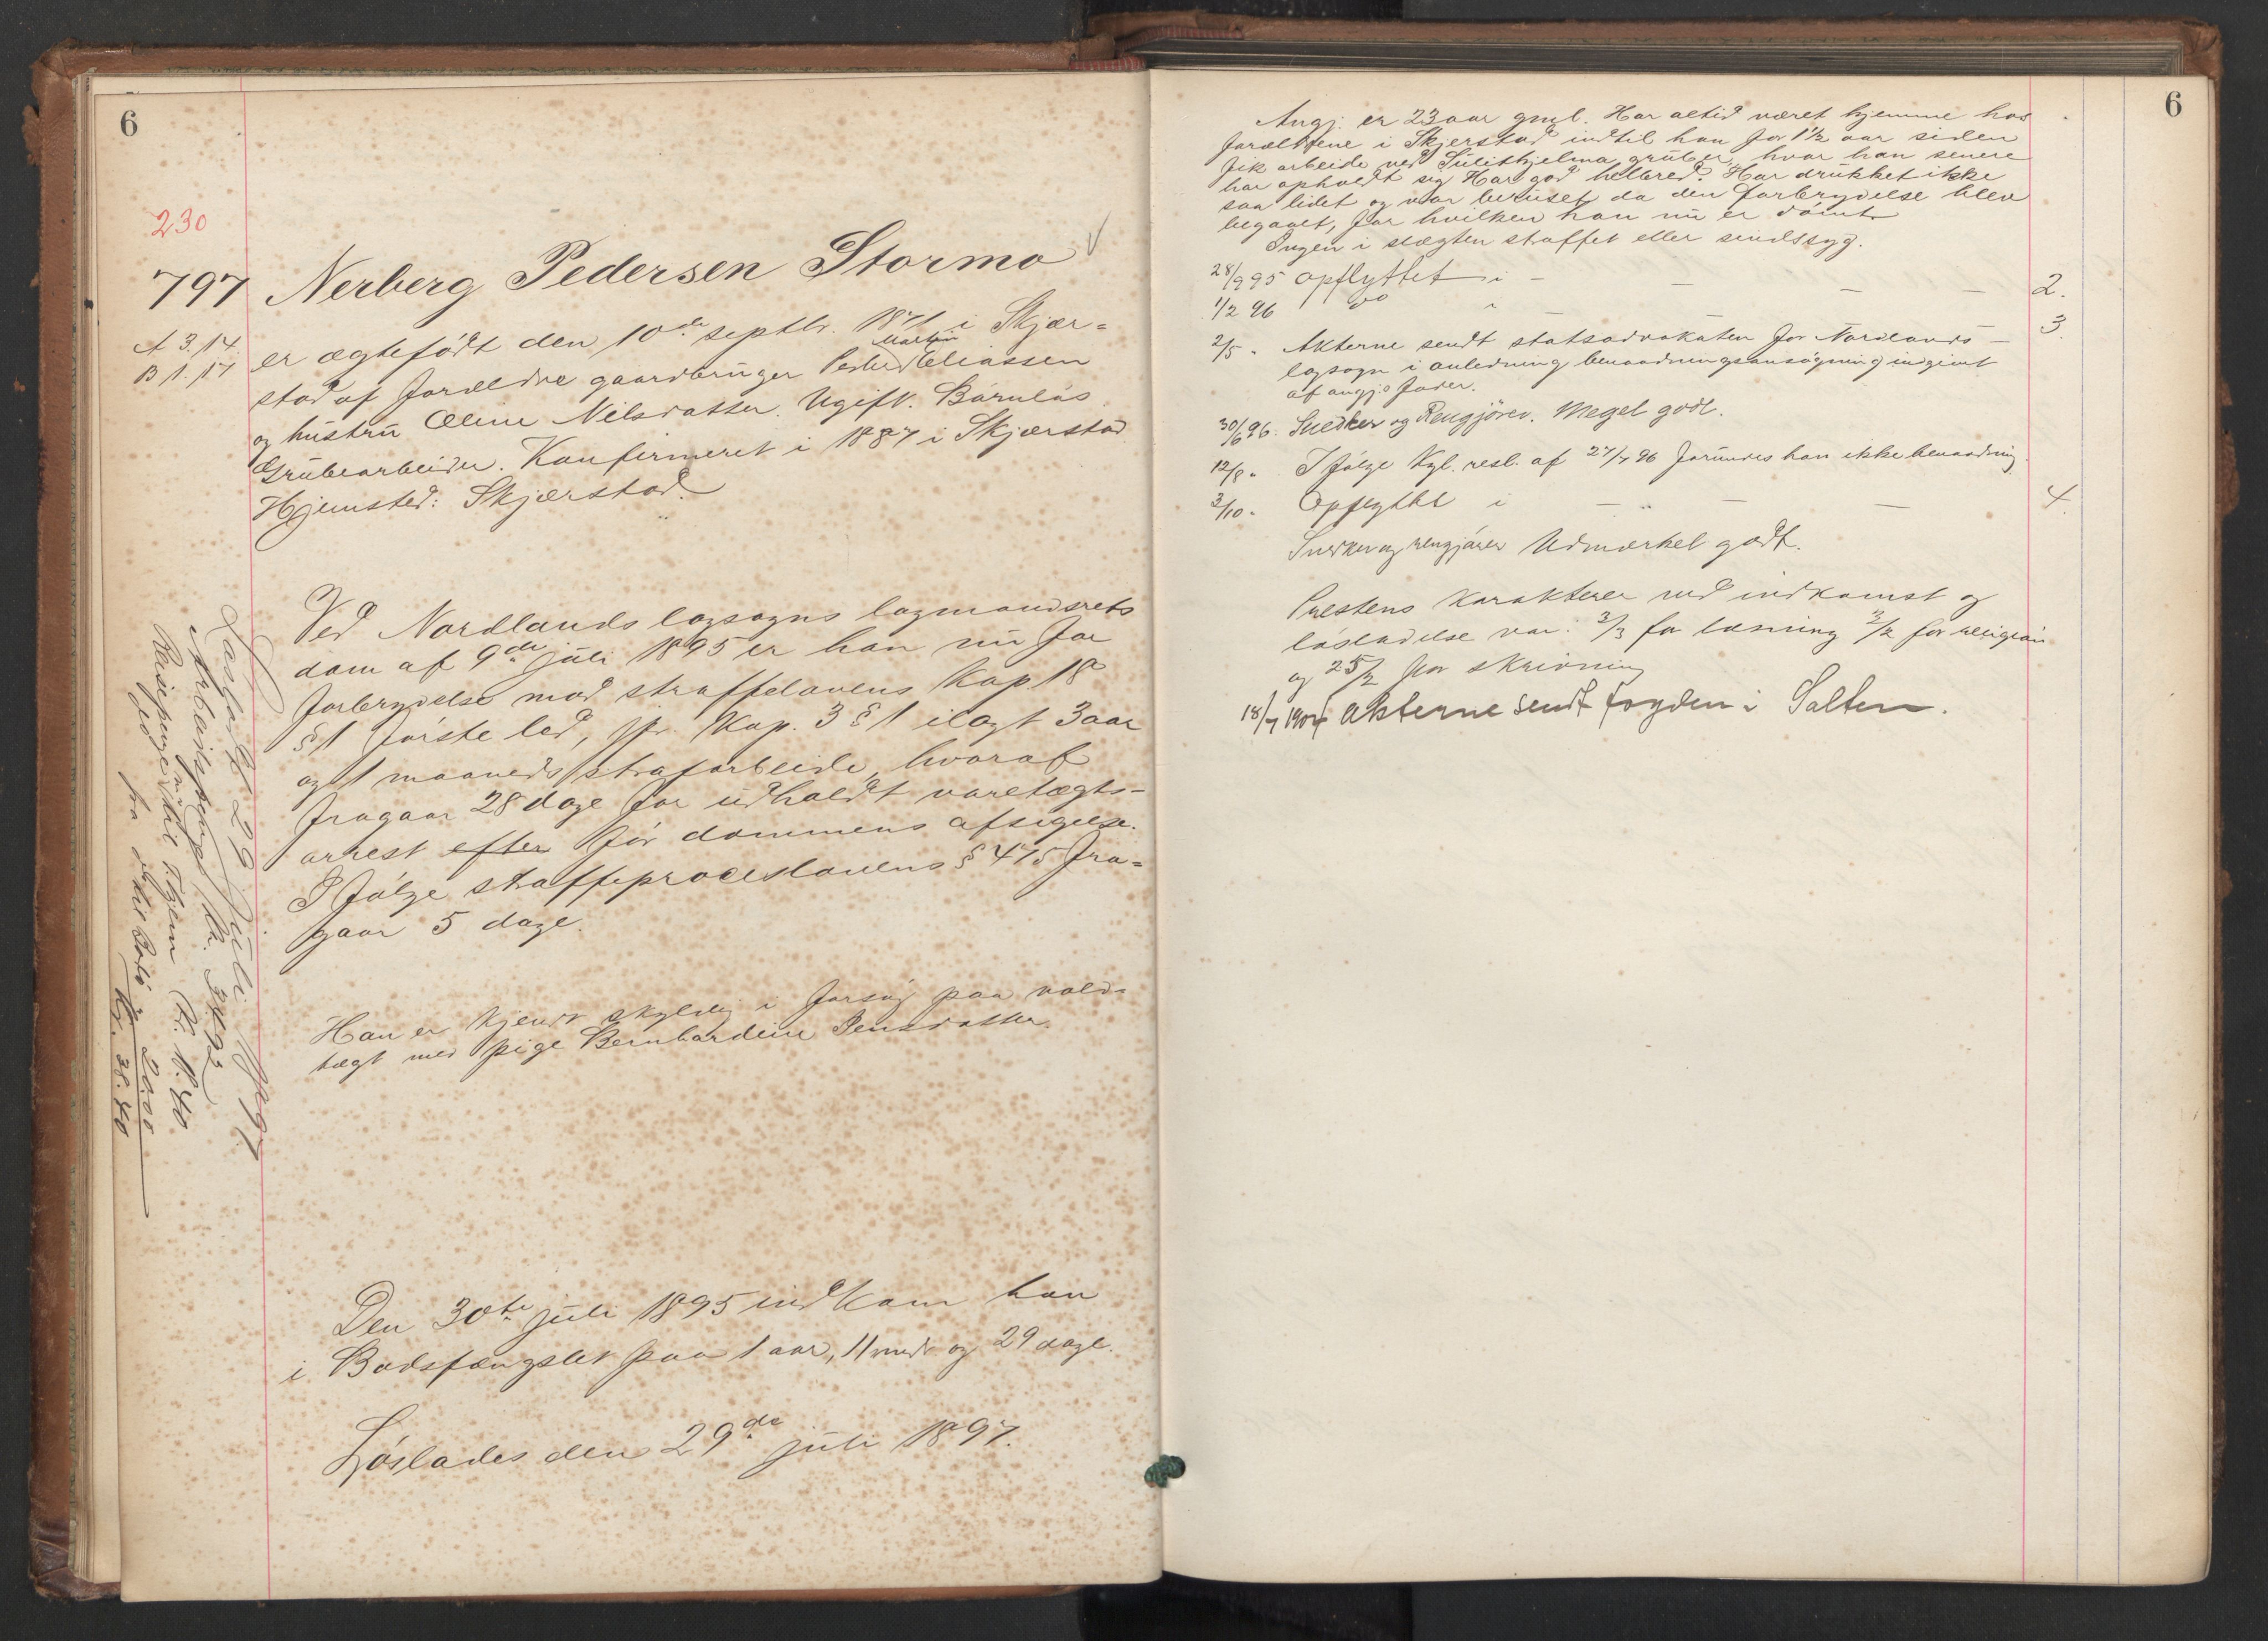 6
230
797 Nerberg Pedersen Stormo
A 3. 14.
B 1. 17
er ægtefødt den 10de septbr. 1871 i Skjær=
Martin
stad af forældre gaardbruger Peder Eliassen
og hustru Oline Nilsdatter. Ugift. Barnløs.
Grubearbeider. Konfirmeret i 1887 i Skjærstad.
Hjemsted: Skjærstad.
Ved Nordlands lagsogns lagmandsrets
dom af 9de juli 1895 er han nu for
forbrydelse mod straffelovens Kap. 18
§ 1 første led, jfr. Kap. 3 § 1 ilagt 3 aar
og 1 maaneds strafarbeide, hvoraf
fragaar 28 dage for udholdt varetægts-
arrest efter før dommens afsigelse.
I følge straffeproceslovens § 475 fra=
gaar 5 dage.
Han er kjendt skyldig i forsøg paa vold=
tægt med pige Bernhardine Jensdatter.
Den 30te juli 1895 indkom han
i Bodsfængslet paa 1 aar, 11 mdr og 29 dage.
Løslades den 29de juli 1897.
Løsladt 29 juli 1897
Arbeidspenge Kr. 34.92
Reisepenge til Kr. 18.40
fra til Bodø " 20.00
Kr. 38.40
6
Angj. er 23 aar gml. Har altid været hjemme hos
forældrene i Skjerstad indtil han for 1 1/2 aar siden
fik arbeide ved Sulithjelma gruber, hvor han senere
har opholdt sig. Har god helbred. Har drukket ikke
saa lidet og var beruset da den forbrydelse blev
begaaet, for hvilken han nu er dømt.
Ingen i slægten straffet eller sindssyg.
28/9 95 Opflyttet i - — — — 2.
1/2 96 do " 3.
2/5 " Akterne sendt statsadvokaten for Nordlands
lagsogn i anledning benaadningsansøgning indgivet
af angjs fader.
30/6 96. Snedker og Rengjører. Meget godt.
12/8 " I følge Kgl. resl. af 27/7 96 forundes han ikke benaadning.
3/10 " Opflyttet i — " — — 4.
Snedker og rengjører Udmærket godt.
Prestens Karakterer ved indkomst og
løsladelse var: 3/3 for læsning 2/2 for religion
og 25/2 for skrivning
18/7 1904 Akterne sendt fogden i Salten.